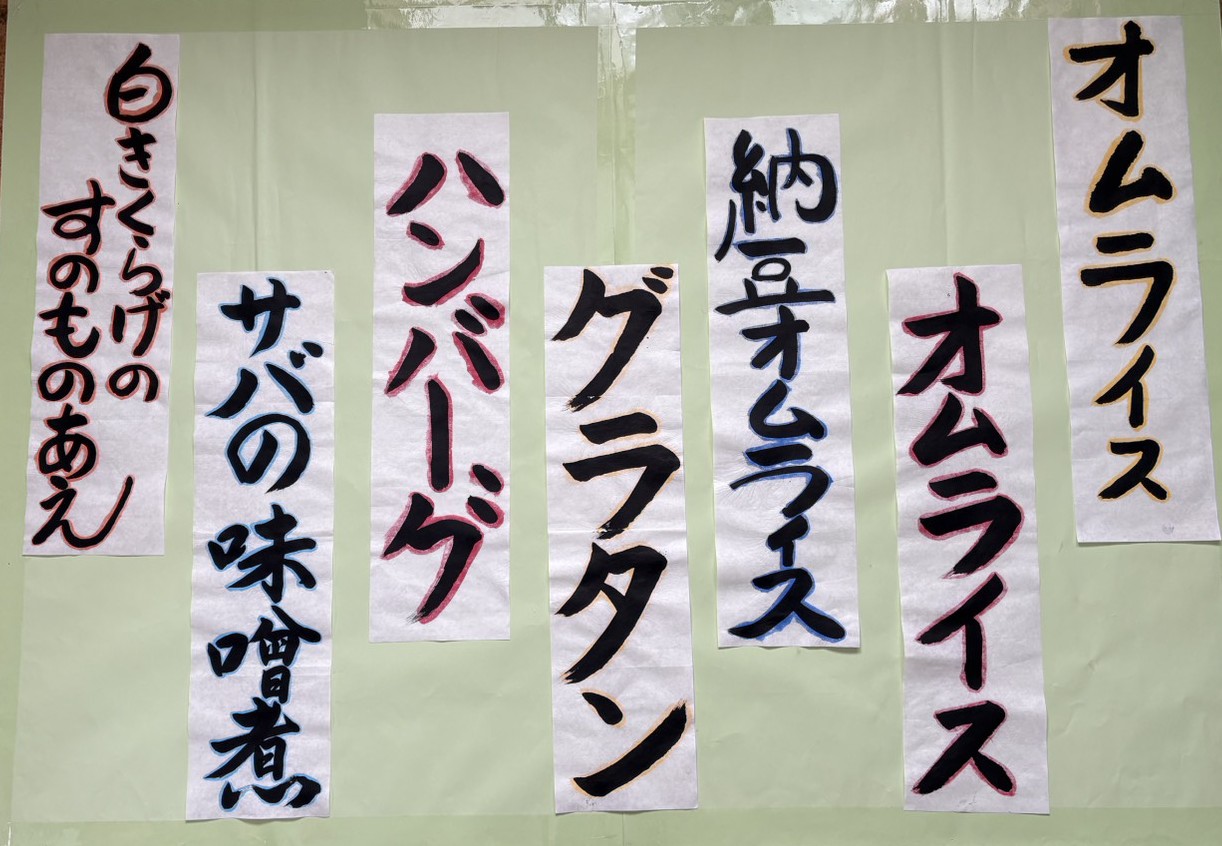 オムライス
オムライス
納豆オムライス
グラタン
ハンバーグ
サバの味噌煮
白きくらげの
すのものあえ